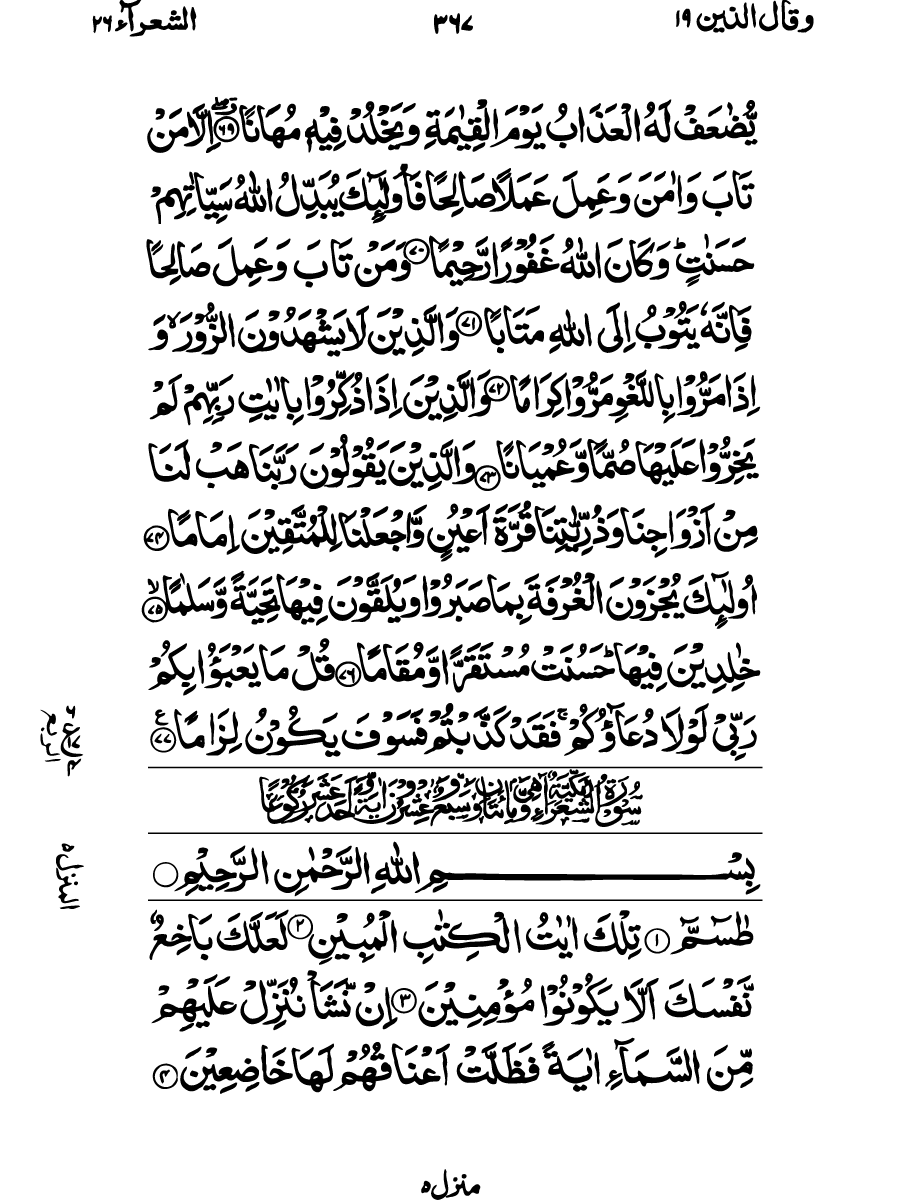 وقال الذين ١٩
٣٦٧
الشعرآء ٢٦
يُّضٰعَفْ لَهُ الْعَذَابُ يَوْمَ الْقِيٰمَةِ وَيَخْلُدْ فِيْهٖ مُهَانًا ﴿٦٩﴾ اِلَّا مَنْ
تَابَ وَاٰمَنَ وَعَمِلَ عَمَلًا صَالِحًا فَاُولٰٓئِكَ يُبَدِّلُ اللّٰهُ سَيِّاٰتِهِمْ
حَسَنٰتٍ ؕ وَكَانَ اللّٰهُ غَفُوْرًا رَّحِيْمًا ﴿٧٠﴾ وَمَنْ تَابَ وَعَمِلَ صَالِحًا
فَاِنَّهٗ يَتُوْبُ اِلَى اللّٰهِ مَتَابًا ﴿٧١﴾ وَالَّذِيْنَ لَا يَشْهَدُوْنَ الزُّوْرَ ۙ وَ
اِذَا مَرُّوْا بِاللَّغْوِ مَرُّوْا كِرَامًا ﴿٧٢﴾ وَالَّذِيْنَ اِذَا ذُكِّرُوْا بِاٰيٰتِ رَبِّهِمْ لَمْ
يَخِرُّوْا عَلَيْهَا صُمًّا وَّعُمْيَانًا ﴿٧٣﴾ وَالَّذِيْنَ يَقُوْلُوْنَ رَبَّنَا هَبْ لَنَا
مِنْ اَزْوَاجِنَا وَذُرِّيّٰتِنَا قُرَّةَ اَعْيُنٍ وَّاجْعَلْنَا لِلْمُتَّقِيْنَ اِمَامًا ﴿٧٤﴾
اُولٰٓئِكَ يُجْزَوْنَ الْغُرْفَةَ بِمَا صَبَرُوْا وَيُلَقَّوْنَ فِيْهَا تَحِيَّةً وَّسَلٰمًا ۙ﴿٧٥﴾
خٰلِدِيْنَ فِيْهَا ؕ حَسُنَتْ مُسْتَقَرًّا وَّمُقَامًا ﴿٧٦﴾ قُلْ مَا يَعْبَؤُا بِكُمْ
رَبِّيْ لَوْلَا دُعَآؤُكُمْ ۚ فَقَدْ كَذَّبْتُمْ فَسَوْفَ يَكُوْنُ لِزَامًا ﴿٧٧﴾ ع
الربع
سُوْرَةُ الشُّعَرَآءِ مَكِّيَّةٌ وَّهِيَ مِائَتَانِ وَسَبْعٌ وَّعِشْرُوْنَ اٰيَةً وَّاَحَدَ عَشَرَ رُكُوْعًا
بِسْمِ اللّٰهِ الرَّحْمٰنِ الرَّحِيْمِ
المنزل ٥
طٰسٓمّٓ ﴿١﴾ تِلْكَ اٰيٰتُ الْكِتٰبِ الْمُبِيْنِ ﴿٢﴾ لَعَلَّكَ بَاخِعٌ
نَّفْسَكَ اَلَّا يَكُوْنُوْا مُؤْمِنِيْنَ ﴿٣﴾ اِنْ نَّشَاْ نُنَزِّلْ عَلَيْهِمْ
مِّنَ السَّمَآءِ اٰيَةً فَظَلَّتْ اَعْنَاقُهُمْ لَهَا خَاضِعِيْنَ ﴿٤﴾
منزل ٥